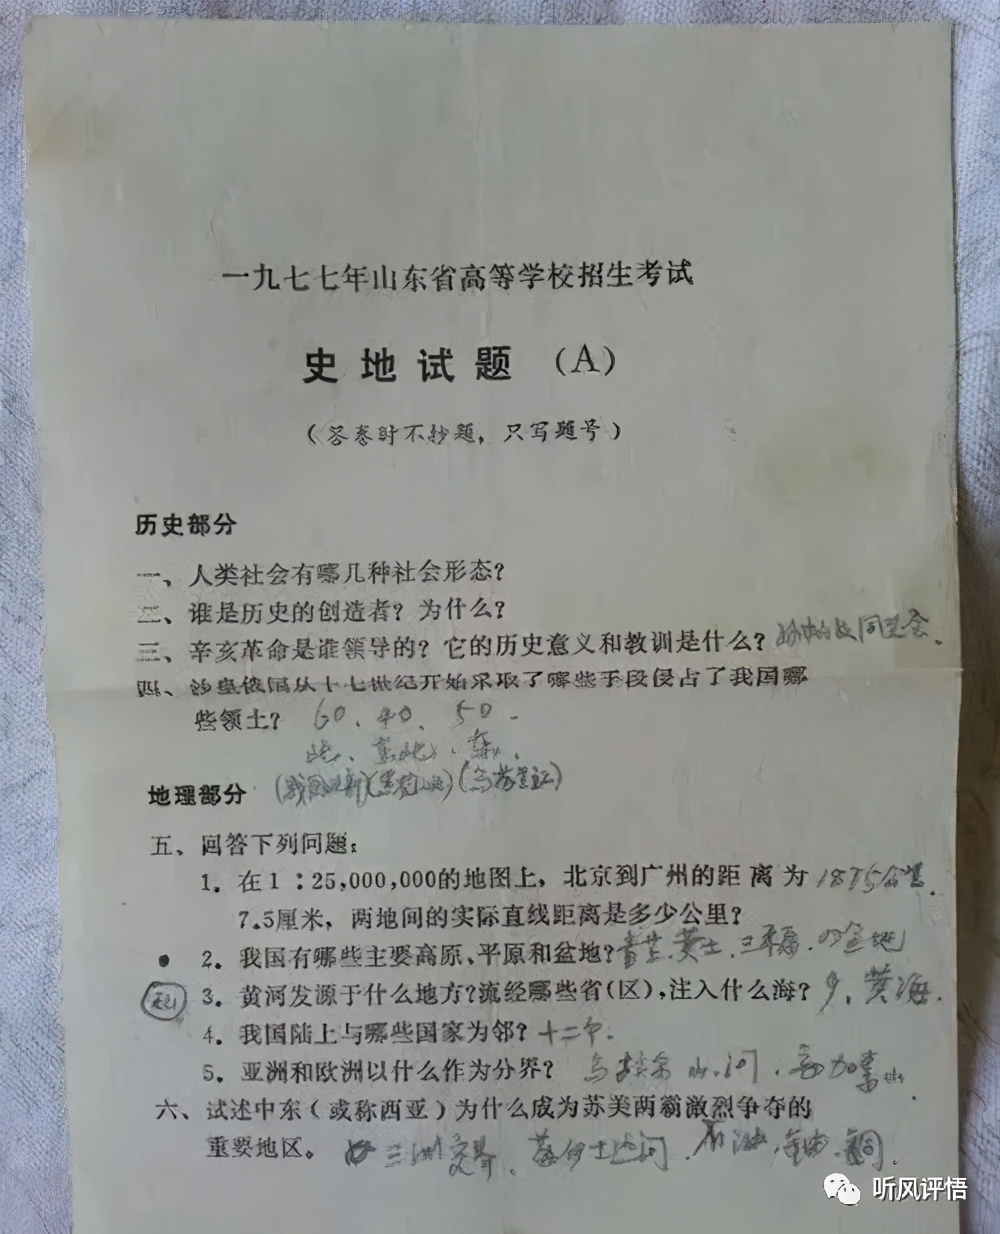 一九七七年山东省高等学校招生考试
史地试题（A）
（答卷时不抄题，只写题号）
历史部分
一、人类社会有哪几种社会形态？
二、谁是历史的创造者？为什么？
三、辛亥革命是谁领导的？它的历史意义和教训是什么？ 同盟会
四、沙皇俄国从十七世纪开始采取了哪些手段侵占了我国哪
些领土？ 60、40、50
地理部分
五、回答下列问题：
1．在1∶25,000,000的地图上，北京到广州的距离为 1875公里
7.5厘米，两地间的实际直线距离是多少公里？
2．我国有哪些主要高原、平原和盆地？
3．黄河发源于什么地方？流经哪些省（区），注入什么海？ 黄海
4．我国陆上与哪些国家为邻？ 十二个
5．亚洲和欧洲以什么作为分界？ 乌拉尔山、河、高加索山
六、试述中东（或称西亚）为什么成为苏美两霸激烈争夺的
重要地区。 三洲交界、苏伊士运河、石油
听风评悟